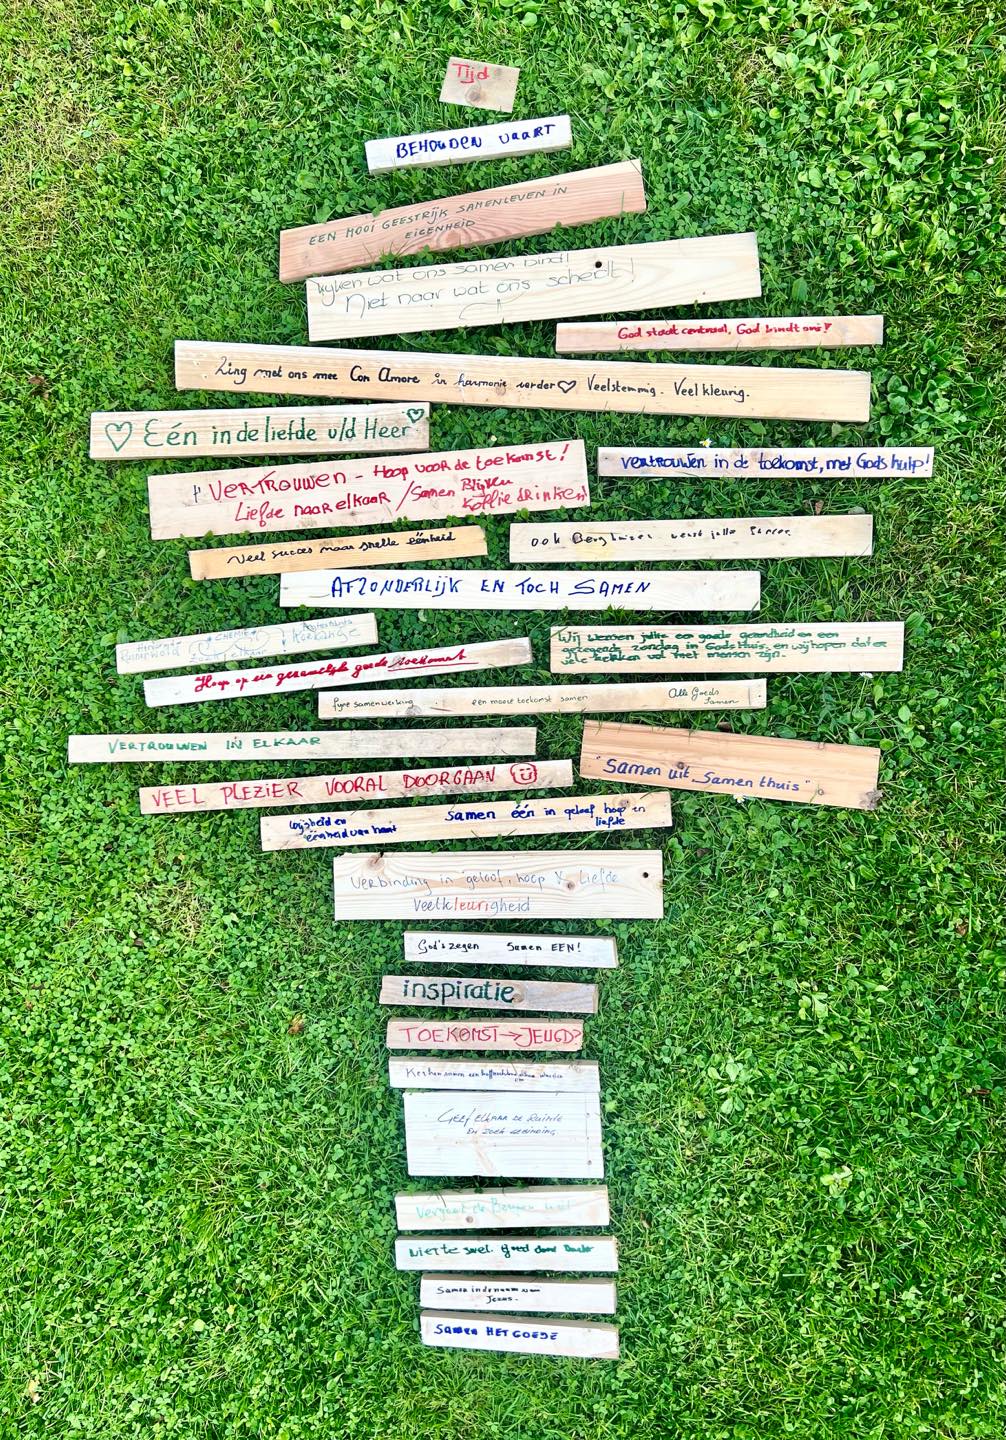 Tijd
BEHOUDEN VAART
EEN MOOI GEESTRIJK SAMENLEVEN IN
EIGENHEID
Kijken wat ons samen bindt!
Niet naar wat ons scheidt!
God staat centraal, God bindt ons!
Zing met ons mee Con Amore in harmonie verder Veelstemmig. Veelkleurig.
Eén in de liefde v/d Heer
VERTROUWEN - Hoop voor de toekomst!
Liefde naar elkaar / Samen Blijven
koffie drinken!
vertrouwen in de toekomst, met Gods hulp!
Veel succes maar snelle éénheid
ook
AFZONDERLIJK EN TOCH SAMEN
CHEMIE
Ruinerwold Koekange
Hoop op een gezamenlijke goede toekomst
Wij wensen jullie een goede gezondheid en een
gezegende zondag in Gods Huis, en wij hopen dat er
vol met mensen zijn.
fijne samenwerking een mooie toekomst samen Alle Goeds
Samen
VERTROUWEN IN ELKAAR
"Samen uit Samen thuis"
VEEL PLEZIER VOORAL DOORGAAN
Wijsheid en
éénheid van hart
Samen één in geloof hoop en
liefde
Verbinding in geloof, hoop & Liefde
Veelkleurigheid
God's zegen Samen EEN!
inspiratie
TOEKOMST → JEUGD?
Kerken samen een
GEEF ELKAAR DE RUIMTE
EN ZOEK VERBINDING
Vergeet de niet
Niet te snel. Goed door
Samen in de naam van
Jezus.
Samen HET GOEDE